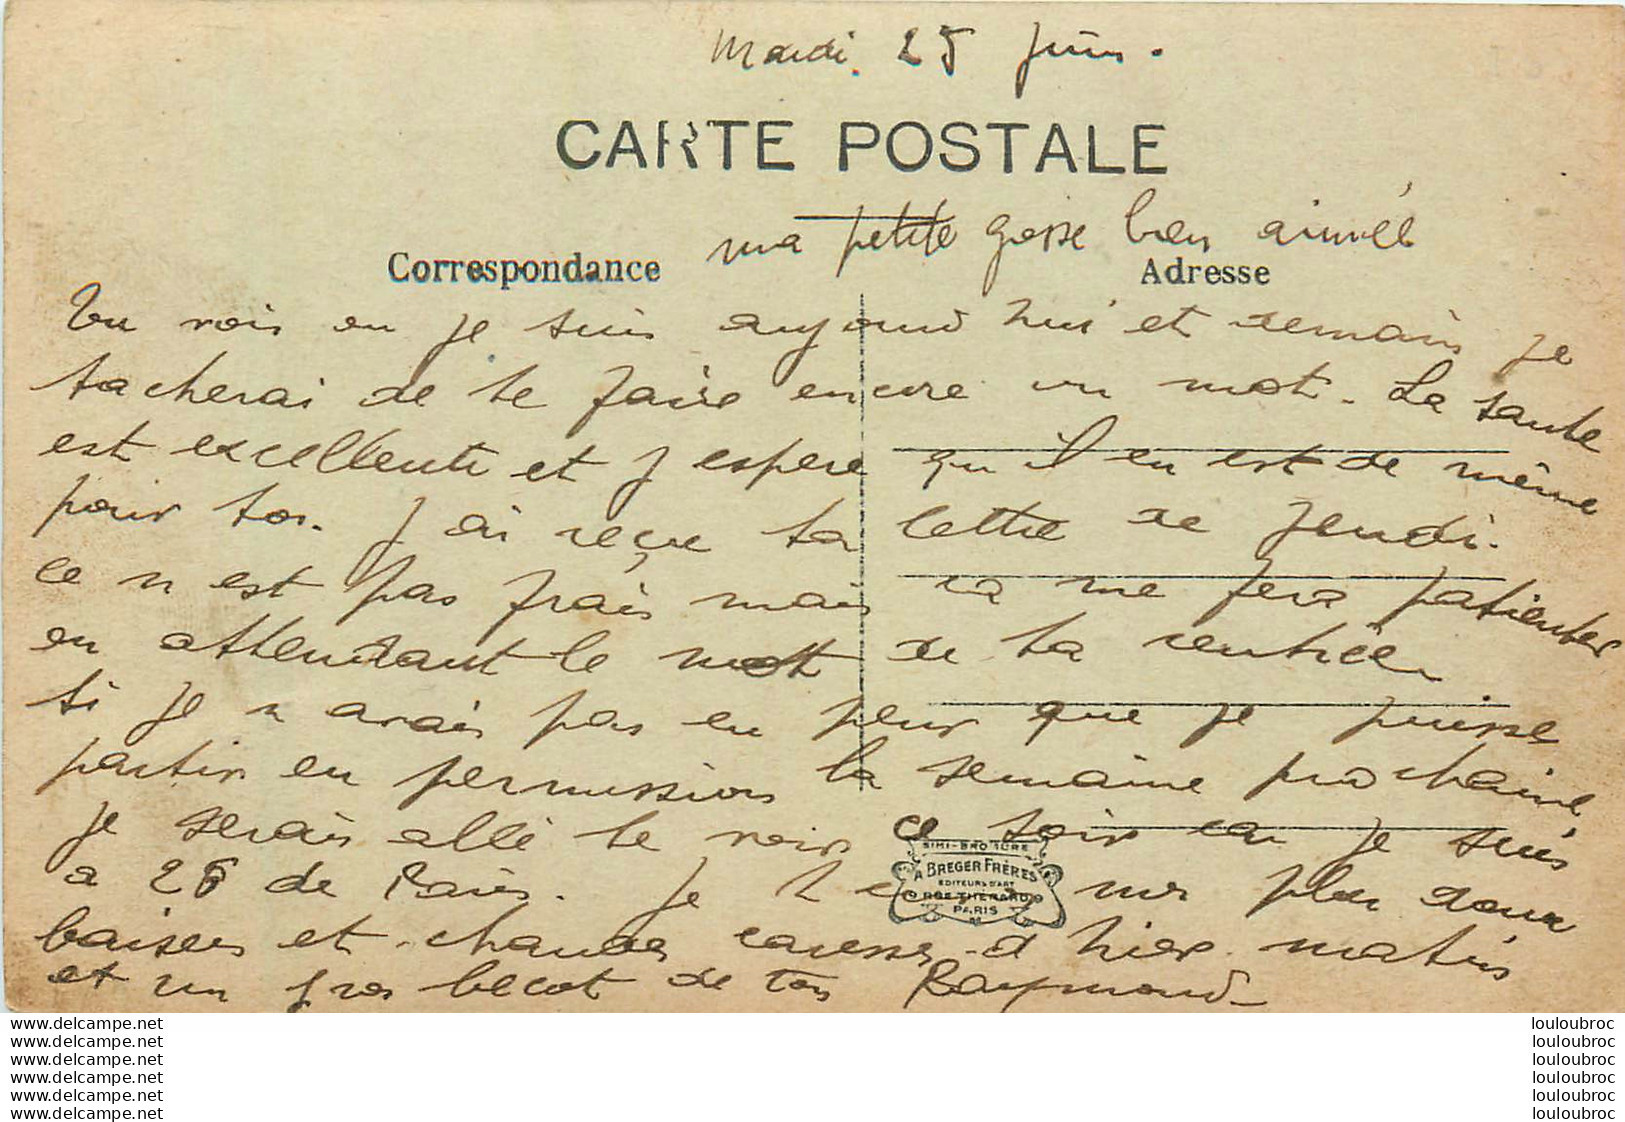 Mardi 25 juin.
CARTE POSTALE
ma petite gosse bien aimée
Correspondance
Adresse
Tu vois ou je suis aujourd hui et demain je
tacherai de te faire encore un mot. La sante
est excellente et j espere qu il en est de même
pour toi. J ai reçu ta lettre de jeudi.
ce n est pas frais mais ca me fera patienter
en attendant le mot de ta rentrée
si je n avais pas eu peur que je puisse
partir en permission la semaine prochaine
je serais allé te voir ce soir car je suis
a 28 de Paris. Je mes plus doux
baisers et chaudes caresses d hier matin
et un gros becot de ton Raymond
SIMI-BROMURE
A BREGER FRÈRES
EDITEURS D'ART
9 RUE THENARD 9
PARIS
www.delcampe.net
www.delcampe.net
www.delcampe.net
www.delcampe.net
www.delcampe.net
www.delcampe.net
louloubroc
louloubroc
louloubroc
louloubroc
louloubroc
louloubroc